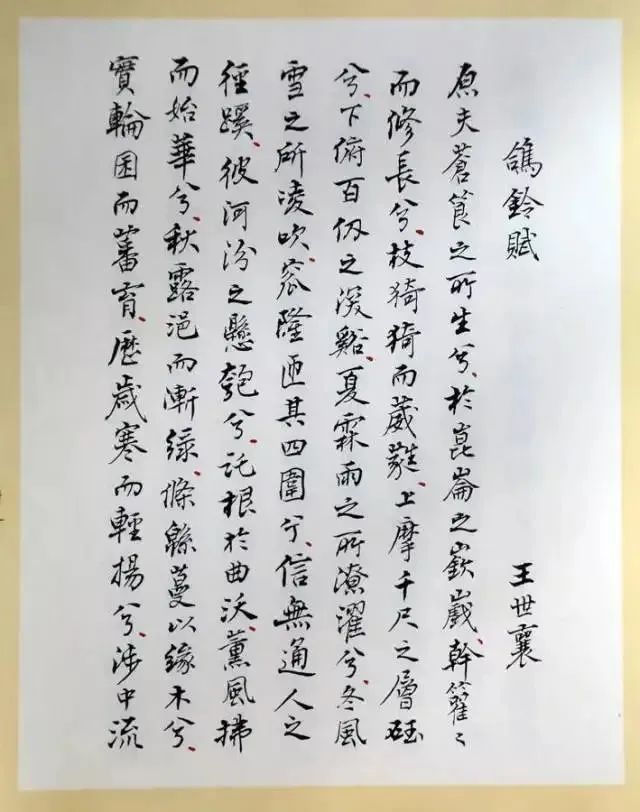 鴿鈴賦 王世襄
原夫蒼筤之所生兮、於崑崙之嶔巇、幹籊〻
而修長兮、枝猗猗而葳蕤、上摩千尺之層
兮、下俯百仞之深谿、夏霖雨之所潦濯兮、冬風
雪之所凌吹、窊隆匝其四圍兮、信無通人之
徑蹊、彼河汾之懸匏兮、託根於曲沃、薰風拂
而始華兮、秋露浥而漸綠、條緜蔓以緣木兮、
實輪囷而蕃育、歷歲寒而輕揚兮、涉中流